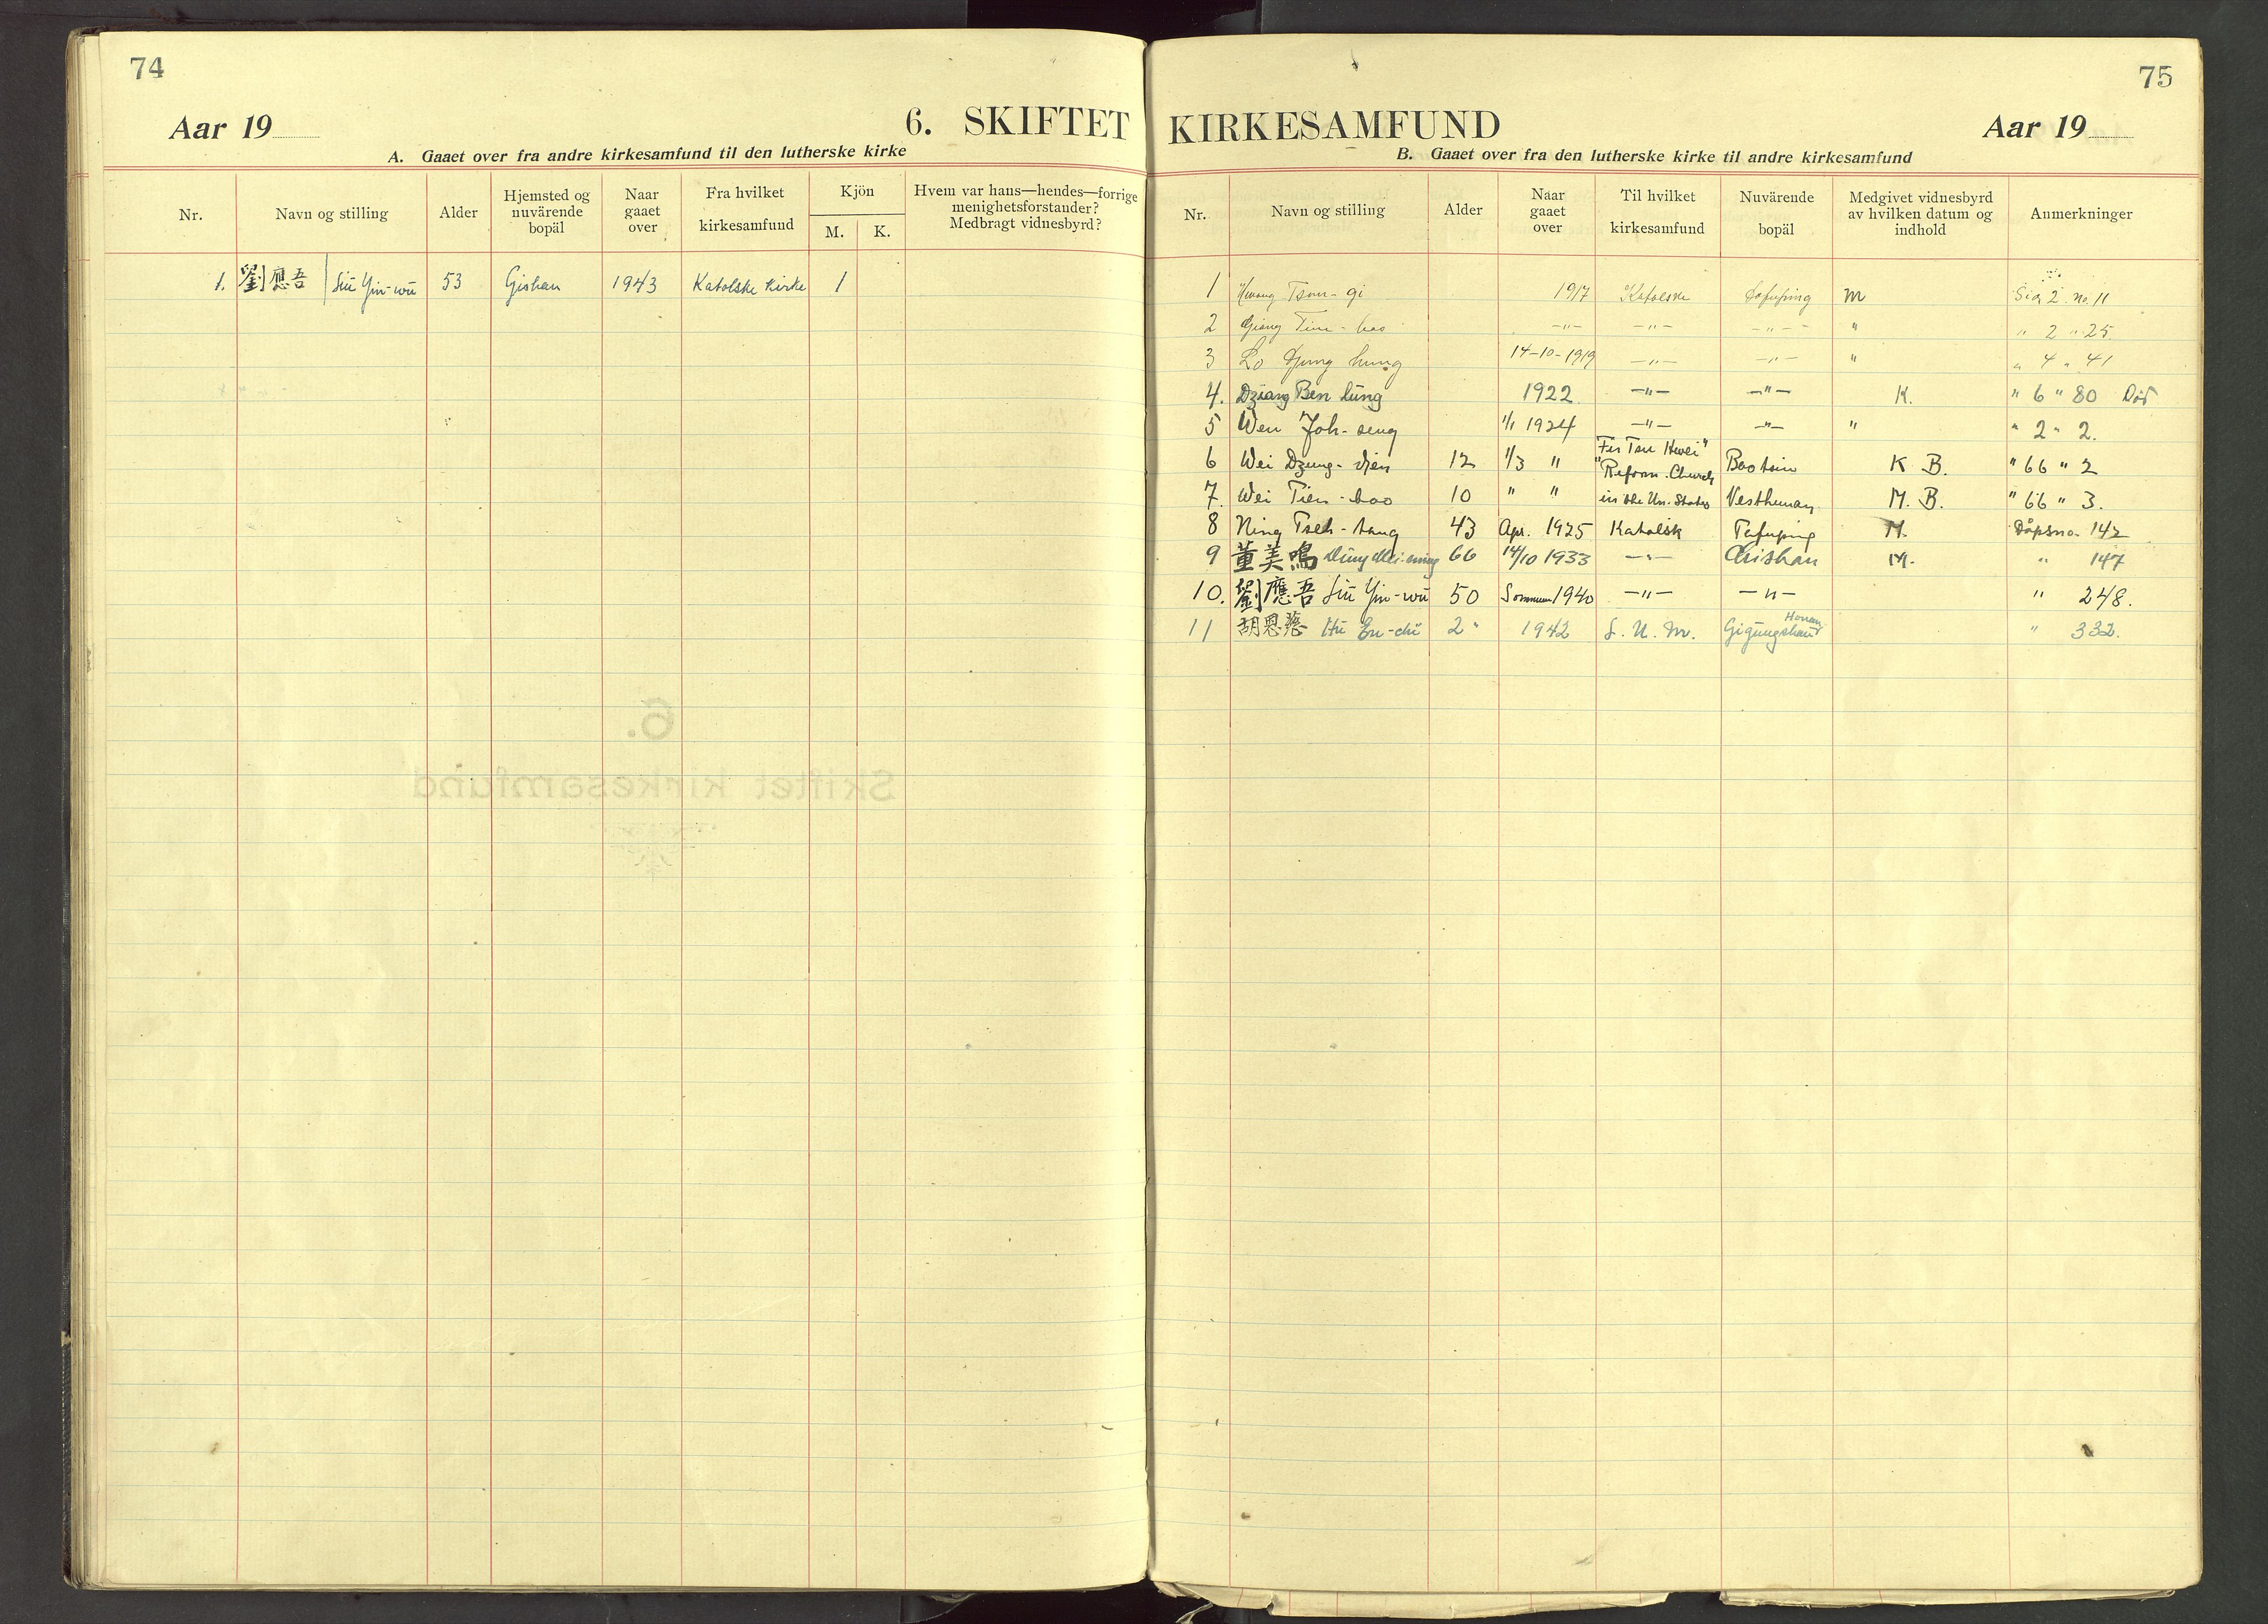 74
Aar 19
6. SKIFTET
A. Gaaet over fra andre kirkesamfund til den lutherske kirke
Nr. Navn og stilling Alder Hjemsted og nuvärende bopäl Naar gaaet over Fra hvilket kirkesamfund Kjön M. K. Hvem var hans—hendes—forrige menighetsforstander? Medbragt vidnesbyrd?
1. 劉應吾 Liu Yin-wu 53 Gishan 1943 Katolske kirke 1
75
KIRKESAMFUND
Aar 19
B. Gaaet over fra den lutherske kirke til andre kirkesamfund
Nr. Navn og stilling Alder Naar gaaet over Til hvilket kirkesamfund Nuvärende bopäl Medgivet vidnesbyrd av hvilken datum og indhold Anmerkninger
1 Hwang Tsun-gi 1917 Katolske Tafuping M Side 2 no. 11
2 Giang Tin-bao —"— —"— —"— " " 2 " 25
3 Lo Gung hung 14-10-1919 —"— —"— " " 4 " 41
4. Dziang Ben lung 1922 —"— —"— K. " 6 " 80 Död
5 Wen Joh-seng 1/1 1924 —"— —"— " " 2 " 2.
6 Wei Dzung-dien 12 1/3 " "Fu Tsu Hwei" "Reform. Church Baotsin K B. " 66 " 2
7. Wei Tien-bao 10 " " in the Un. States Vesthunan M. B. " 66 " 3.
8 Ning Tseh-tang 43 Apr. 1925 Katolsk Tafuping M. Dåpsno. 142
9 董美鳴 Dung Mei-ming 66 14/10 1933 —"— Chishan M. " 147
10. 劉應吾 Liu Yin-wu 50 Sommeren 1940 —"— —"— " 248.
11 胡恩慈 Hu En-chi 2 " 1942 L. U. M. Gigungshan Honan " 332.